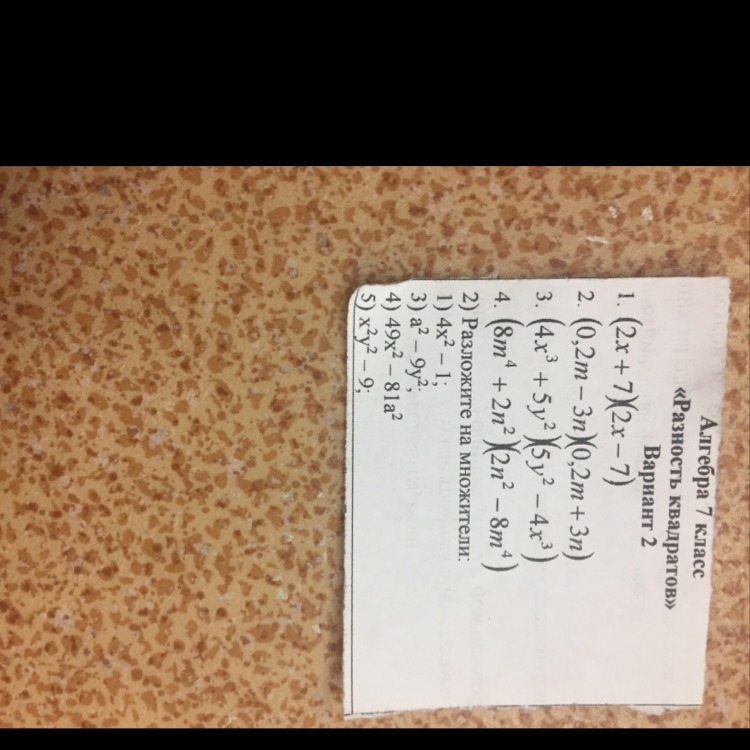 Алгебра 7 класс
«Разность квадратов»
Вариант 2
1. (2x + 7)(2x − 7)
2. (0,2m − 3n)(0,2m + 3n)
3. (4x³ + 5y²)(5y² − 4x³)
4. (8m⁴ + 2n²)(2n² − 8m⁴)
2) Разложите на множители:
1) 4x² − 1;
3) a² − 9y²;
4) 49x² − 81a²
5) x²y² − 9;